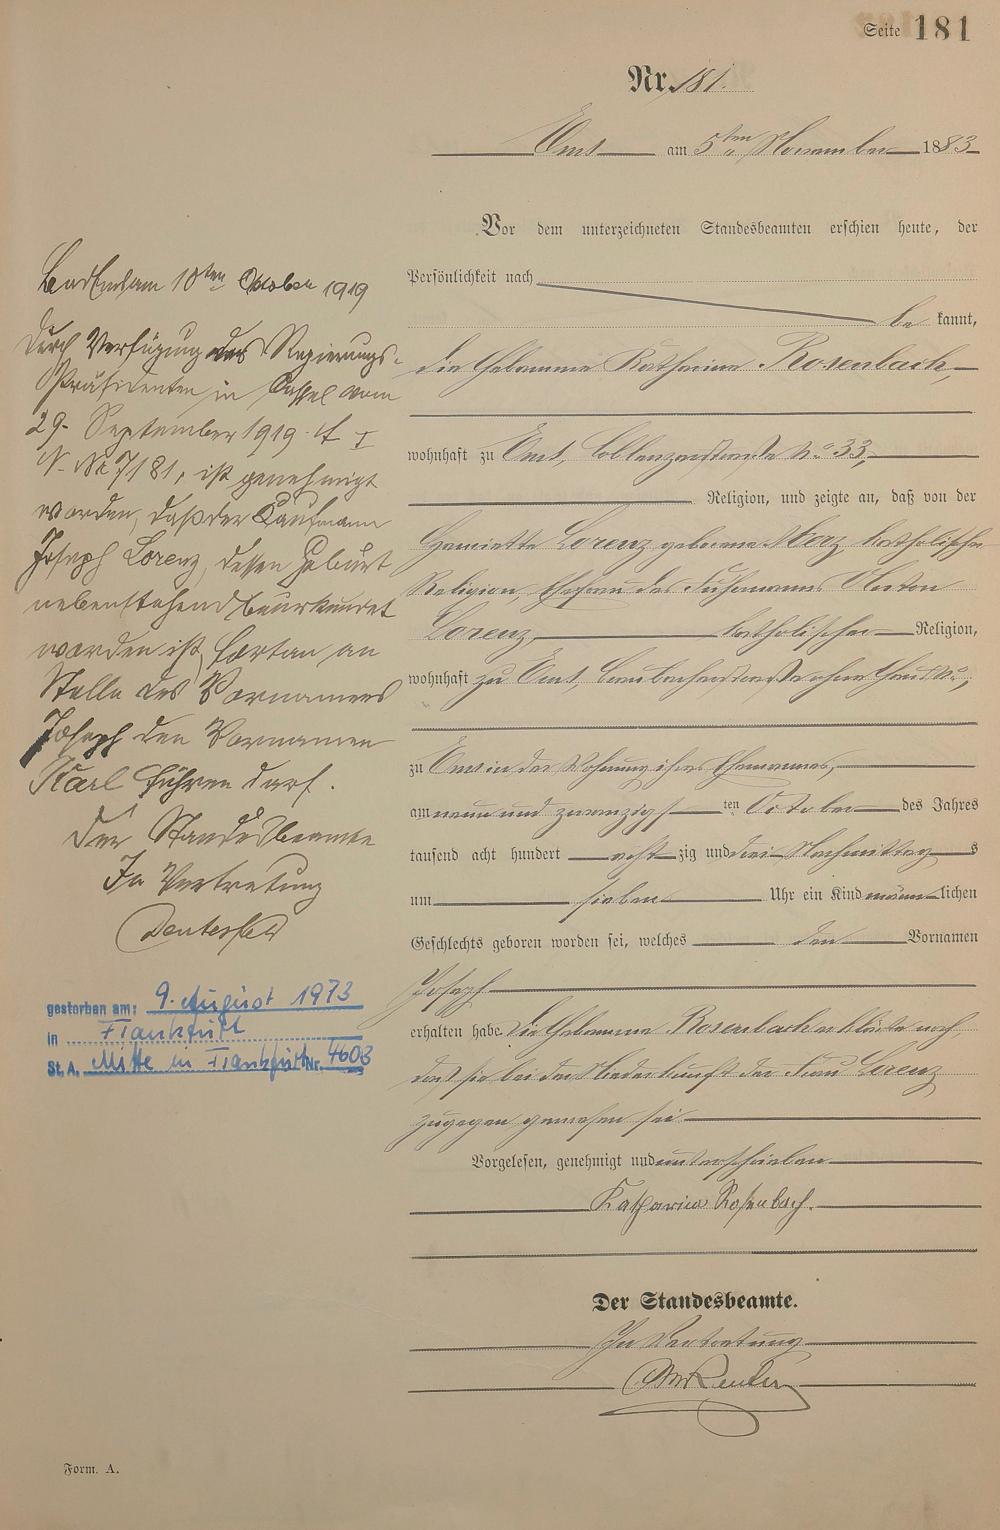 Seite 181
Nr. 181.
Ems am 5ten November 1883
Vor dem unterzeichneten Standesbeamten erschien heute, der
Persönlichkeit nach
be kannt,
die Hebamme Katharina Rosenbach,
wohnhaft zu Ems, Coblenzerstraße No 33,
Religion, und zeigte an, daß von der
Henriette Lorenz geborene Merz, katholischer
Religion, Ehefrau des Fuhrmanns Anton
Lorenz, katholischer Religion,
wohnhaft zu Ems, straße ohne Haus No,
zu Ems in der Wohnung ihres Ehemannes,
am neun und zwanzigsten October des Jahres
tausend acht hundert acht zig und drei Nachmittags
um sieben Uhr ein Kind männlichen
Geschlechts geboren worden sei, welches den Vornamen
Joseph
erhalten habe. Die Hebamme Rosenbach erklärte noch,
daß sie bei der Niederkunft der Frau Lorenz
zugegen gewesen sei
Vorgelesen, genehmigt und unterschrieben
Katharina Rosenbach.
Der Standesbeamte.
In Vertretung
Reuter
Bad Ems am 10ten Oktober 1919
Durch Verfügung des Regierungs-
Präsidenten in Cassel vom
29. September 1919 A I
N. No 7181, ist genehmigt
worden, daß der Kaufmann
Joseph Lorenz, dessen Geburt
nebenstehend beurkundet
worden ist, fortan an
Stelle des Vornamens
Joseph den Vornamen
Karl führen darf.
Der Standesbeamte
In Vertretung
gestorben am: 9. August 1973
in Frankfurt
St.A. Mitte in Frankfurt Nr. 4603
Form. A.